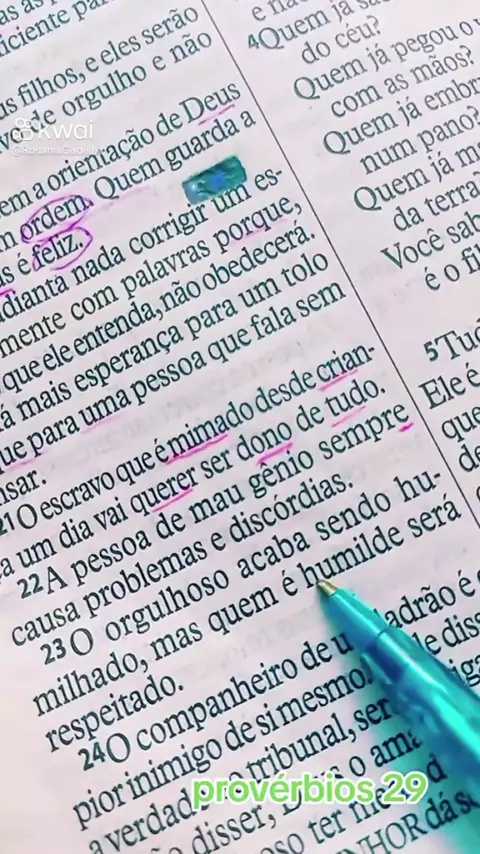 us filhos, e eles serão
de orgulho e não
em a orientação de Deus
m ordem. Quem guarda a
is é feliz.
dianta nada corrigir um es-
mente com palavras porque,
que ele entenda, não obedecerá.
rá mais esperança para um tolo
que para uma pessoa que fala sem
nsar.
21 O escravo que é mimado desde crian-
ça um dia vai querer ser dono de tudo.
22 A pessoa de mau gênio sempre
causa problemas e discórdias.
23 O orgulhoso acaba sendo hu-
milhado, mas quem é humilde será
respeitado.
24 O companheiro de u ladrão é
pior inimigo de si mesmo. le diss
a verdad no tribunal, ser
ão disser, o ama
oso ter me d
NHOR dá s
e nã
4 Quem já s
do céu?
Quem já pegou o v
com as mãos?
Quem já embr
num pano?
Quem já m
da terra?
Você sab
é o fil
5 Tud
Ele é
que
de
kwai
provérbios 29